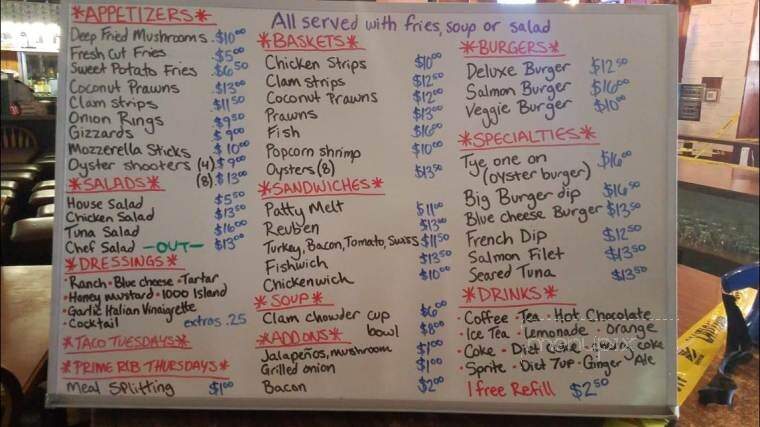 All served with fries, soup or salad
*APPETIZERS*
Deep Fried Mushrooms $10⁰⁰
Fresh Cut Fries $5⁰⁰
Sweet Potato Fries $6⁵⁰
Coconut Prawns $13⁰⁰
Clam strips $11⁵⁰
Onion Rings $9⁵⁰
Gizzards $9⁰⁰
Mozzerella Sticks $10⁰⁰
Oyster shooters (4) $9⁰⁰
(8) $13⁰⁰
*SALADS*
House Salad $5⁵⁰
Chicken Salad $13⁵⁰
Tuna Salad $16⁰⁰
Chef Salad -OUT- $13⁰⁰
*DRESSINGS*
• Ranch • Blue cheese • Tartar
• Honey mustard • 1000 Island
• Garlic Italian Vinaigrette
• Cocktail extras .25
*TACO TUESDAYS*
*PRIME RIB THURSDAYS*
Meal Splitting $1⁰⁰
*BASKETS*
Chicken Strips $10⁰⁰
Clam strips $12⁵⁰
Coconut Prawns $12⁰⁰
Prawns $13⁰⁰
Fish $16⁰⁰
Popcorn shrimp $10⁰⁰
Oysters (8) $13⁵⁰
*SANDWICHES*
Patty Melt $11⁰⁰
Reuben $13⁰⁰
Turkey, Bacon, Tomato, Swiss $11⁵⁰
Fishwich $13⁵⁰
Chickenwich $10⁰⁰
*SOUP*
Clam chowder cup $6⁰⁰
bowl $8⁰⁰
*ADD ONS*
Jalapeños, mushroom $1⁰⁰
Grilled onion $1⁰⁰
Bacon $2⁰⁰
*BURGERS*
Deluxe Burger $12⁵⁰
Salmon Burger $16⁰⁰
Veggie Burger $10⁰⁰
*SPECIALTIES*
Tye one on $16⁰⁰
(oyster burger)
Big Burger dip $16⁵⁰
Blue cheese Burger $13⁵⁰
French Dip $12⁵⁰
Salmon Filet $13⁵⁰
Seared Tuna $13⁵⁰
*DRINKS*
• Coffee • Tea • Hot Chocolate
• Ice Tea • Lemonade • orange
• Coke • Diet Coke • coke
• Sprite • Diet 7up • Ginger Ale
1 free Refill $2⁵⁰
menupix